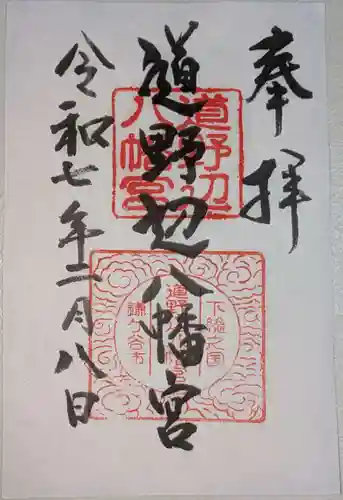 奉拝
道野辺八幡宮
令和七年二月八日
道野辺
八幡宮
下総之国
道野辺八幡宮
鎌ヶ谷市